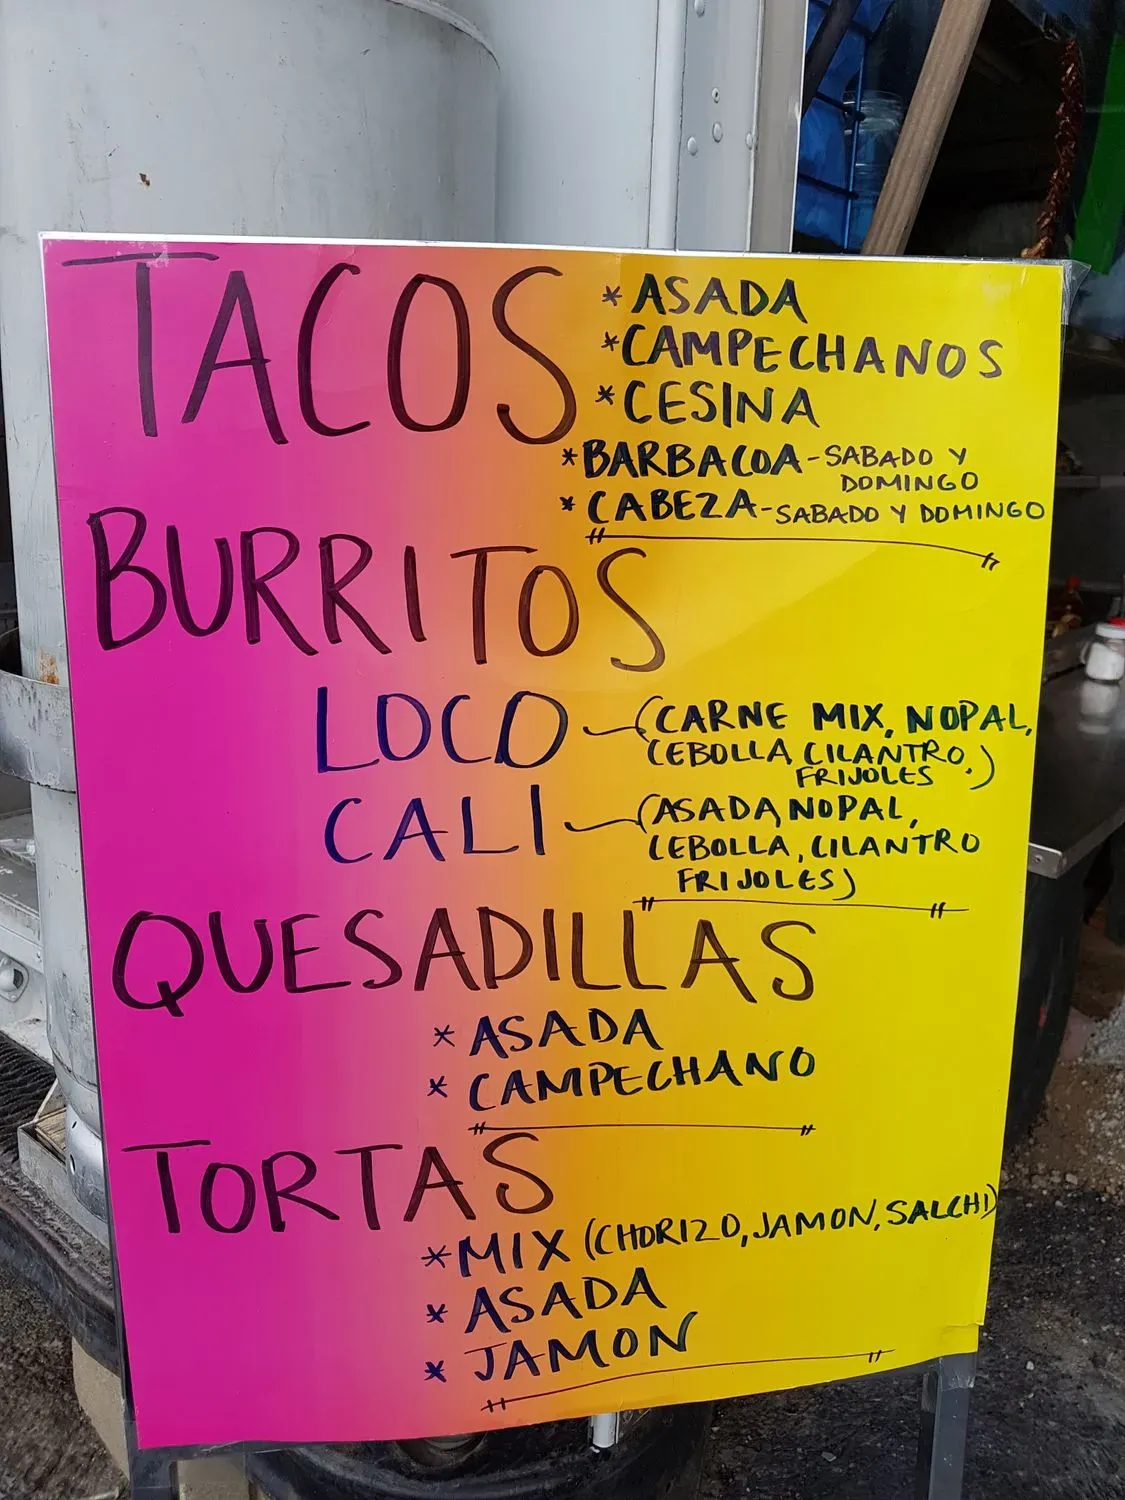 TACOS
* ASADA
* CAMPECHANOS
* CESINA
* BARBACOA - SABADO Y
DOMINGO
* CABEZA - SABADO Y DOMINGO
BURRITOS
LOCO (CARNE MIX, NOPAL,
CEBOLLA, CILANTRO,
FRIJOLES.)
CALI (ASADA, NOPAL,
CEBOLLA, CILANTRO
FRIJOLES)
QUESADILLAS
* ASADA
* CAMPECHANO
TORTAS
* MIX (CHORIZO, JAMON, SALCHI)
* ASADA
* JAMON